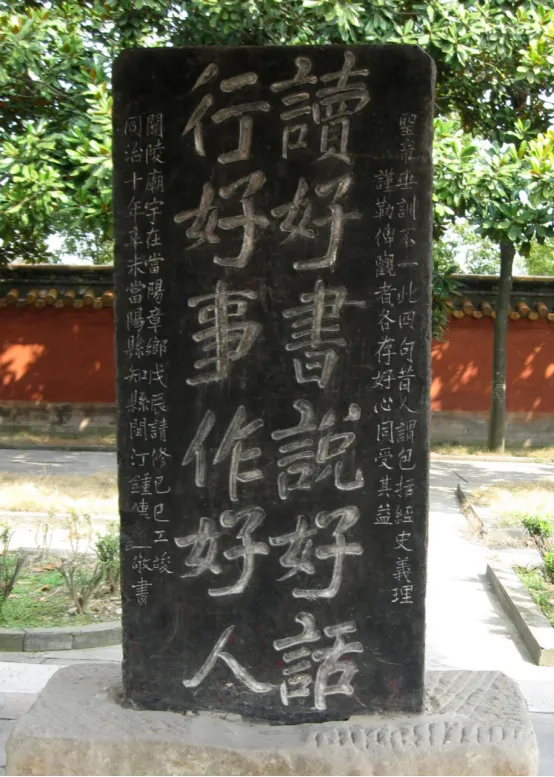 聖帝垂訓不一此四句昔人謂包括經史義理
謹勒俾觀者各存好心同受其益
讀好書說好話
行好事作好人
關陵廟宇在當陽章鄉戊辰請修己巳工竣
同治十年辛未當陽縣知縣閩汀鍾傳益敬書